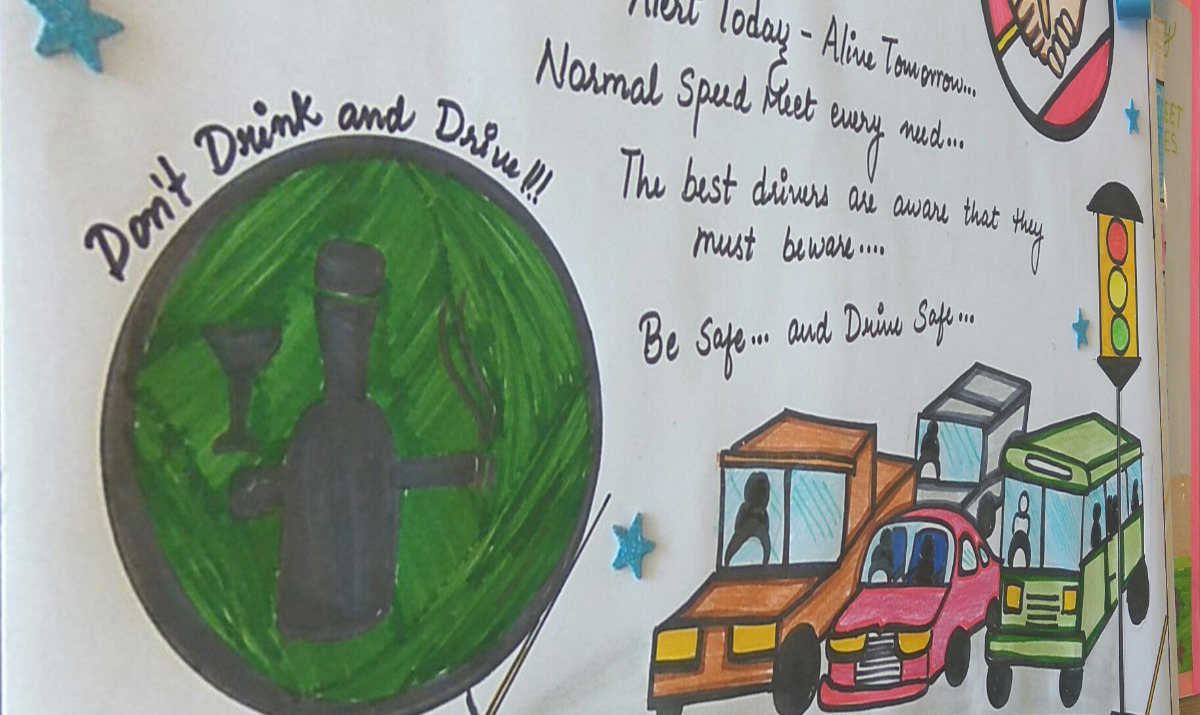 Don't Drink and Drive!!!
Alert Today - Alive Tomorrow...
Normal Speed Meet every need...
The best drivers are aware that they
must beware....
Be Safe... and Drive Safe...